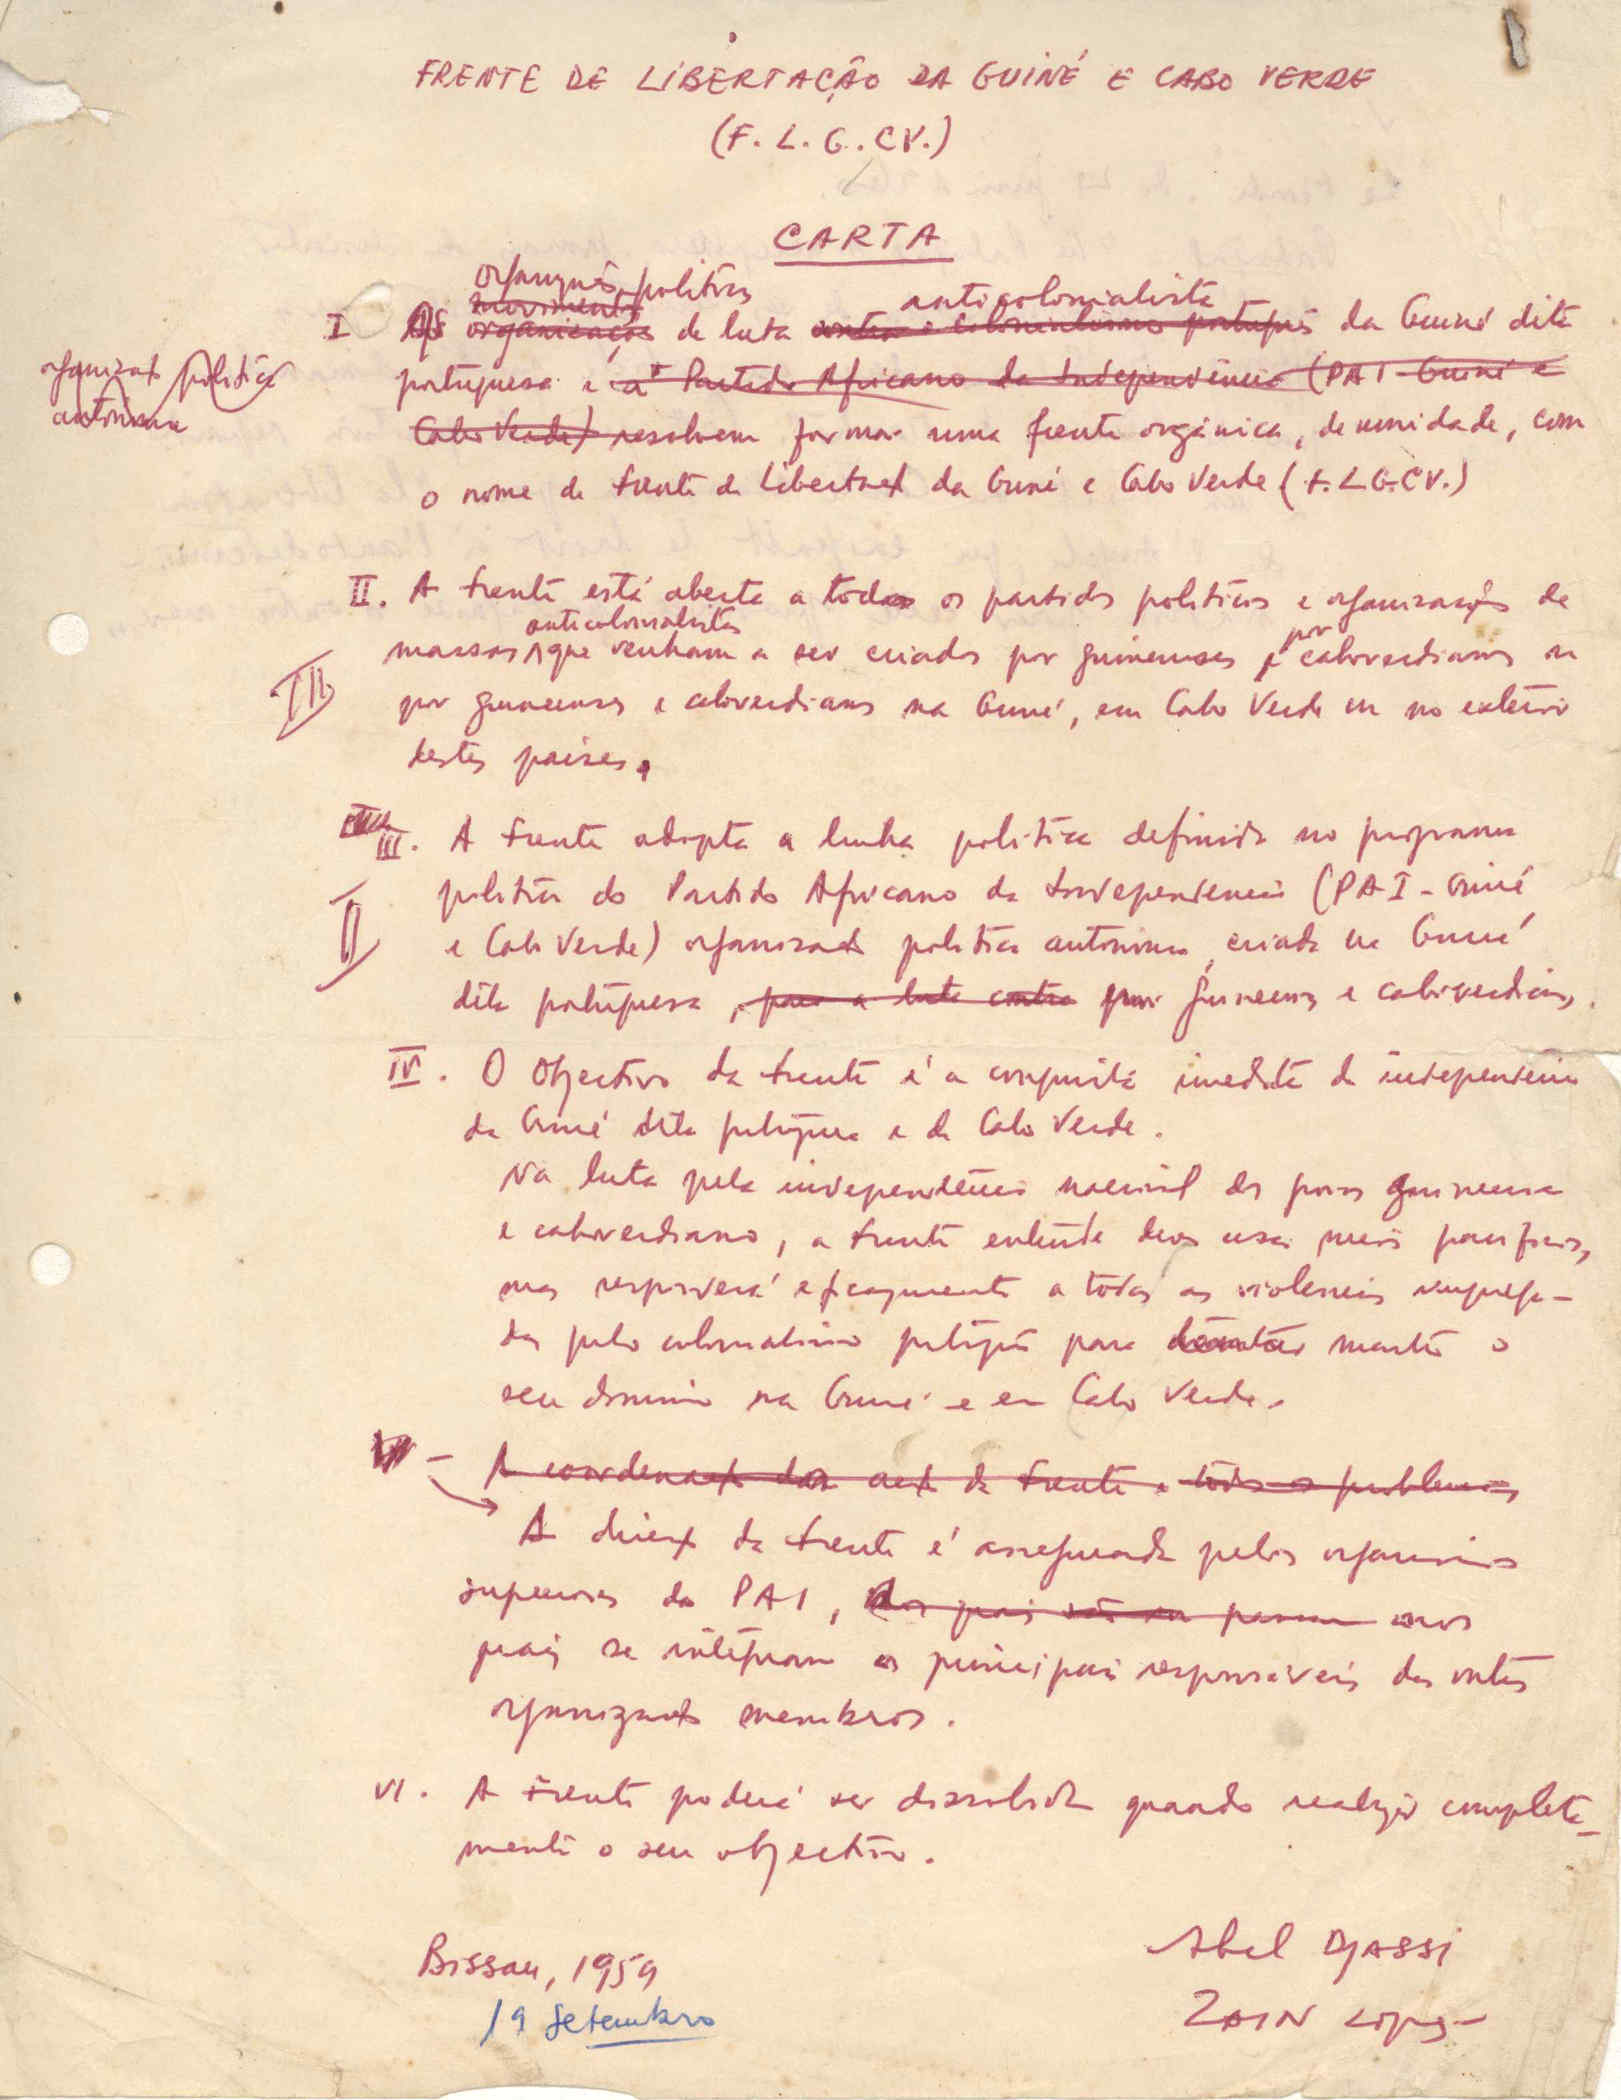 FRENTE DE LIBERTAÇÃO DA GUINÉ E CABO VERDE
(F. L. G. CV.)
CARTA
organizações políticas
movimentos
anticolonialista
I As organizações de luta contra o colonialismo português da Guiné dita
organizaçõ política
autónoma
portuguesa e o Partido Africano da Independência (PAI - Guiné e
Cabo Verde) resolvem formar uma frente orgânica, de unidade, com
o nome de Frente de Libertaçõ da Guiné e Cabo Verde (F.L.G.CV.)
II. A Frente está aberta a todos os partidos políticos e organizações de
anticolonialistas
por
massas que venham a ser criados por guineenses e caboverdianos ou
III
por guineenses e caboverdianos na Guiné, em Cabo Verde ou no exterior
destes países.
III. A Frente adopta a linha política definida no programa
político do Partido Africano da Independência (PAI - Guiné
II
e Cabo Verde) organizaçõ política autónoma, criada na Guiné
dita portuguesa, para a luta contra por guineenses e caboverdianos.
IV. O objectivo da Frente é a conquista imediata da independência
da Guiné dita portuguesa e de Cabo Verde.
Na luta pela independência nacional dos povos guineense
e caboverdiano, a Frente entende dever usar meios pacíficos,
mas responderá eficazmente a todas as violências emprega-
das pelo colonialismo português para manter o
seu domínio na Guiné e em Cabo Verde.
V - A coordenaçõ da acçõ da Frente e todos os problemas
A direcçõ da Frente é assegurada pelos organismos
superiores do PAI, dos quais nos
quais se integram os principais responsáveis das outras
organizações membros.
VI. A Frente poderá ser dissolvida quando realizar completa-
mente o seu objectivo.
Bissau, 1959
19 Setembro
Abel DJASSI
ZAIN Lopes